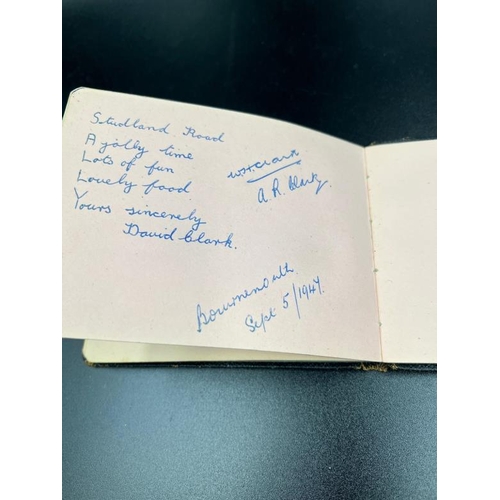 Studland Road
A jolly time
Lots of fun
Lovely food
Yours sincerely
David Clark.
W.H.Clark
A. R. Clark.
Bournemouth.
Sept 5/1947.